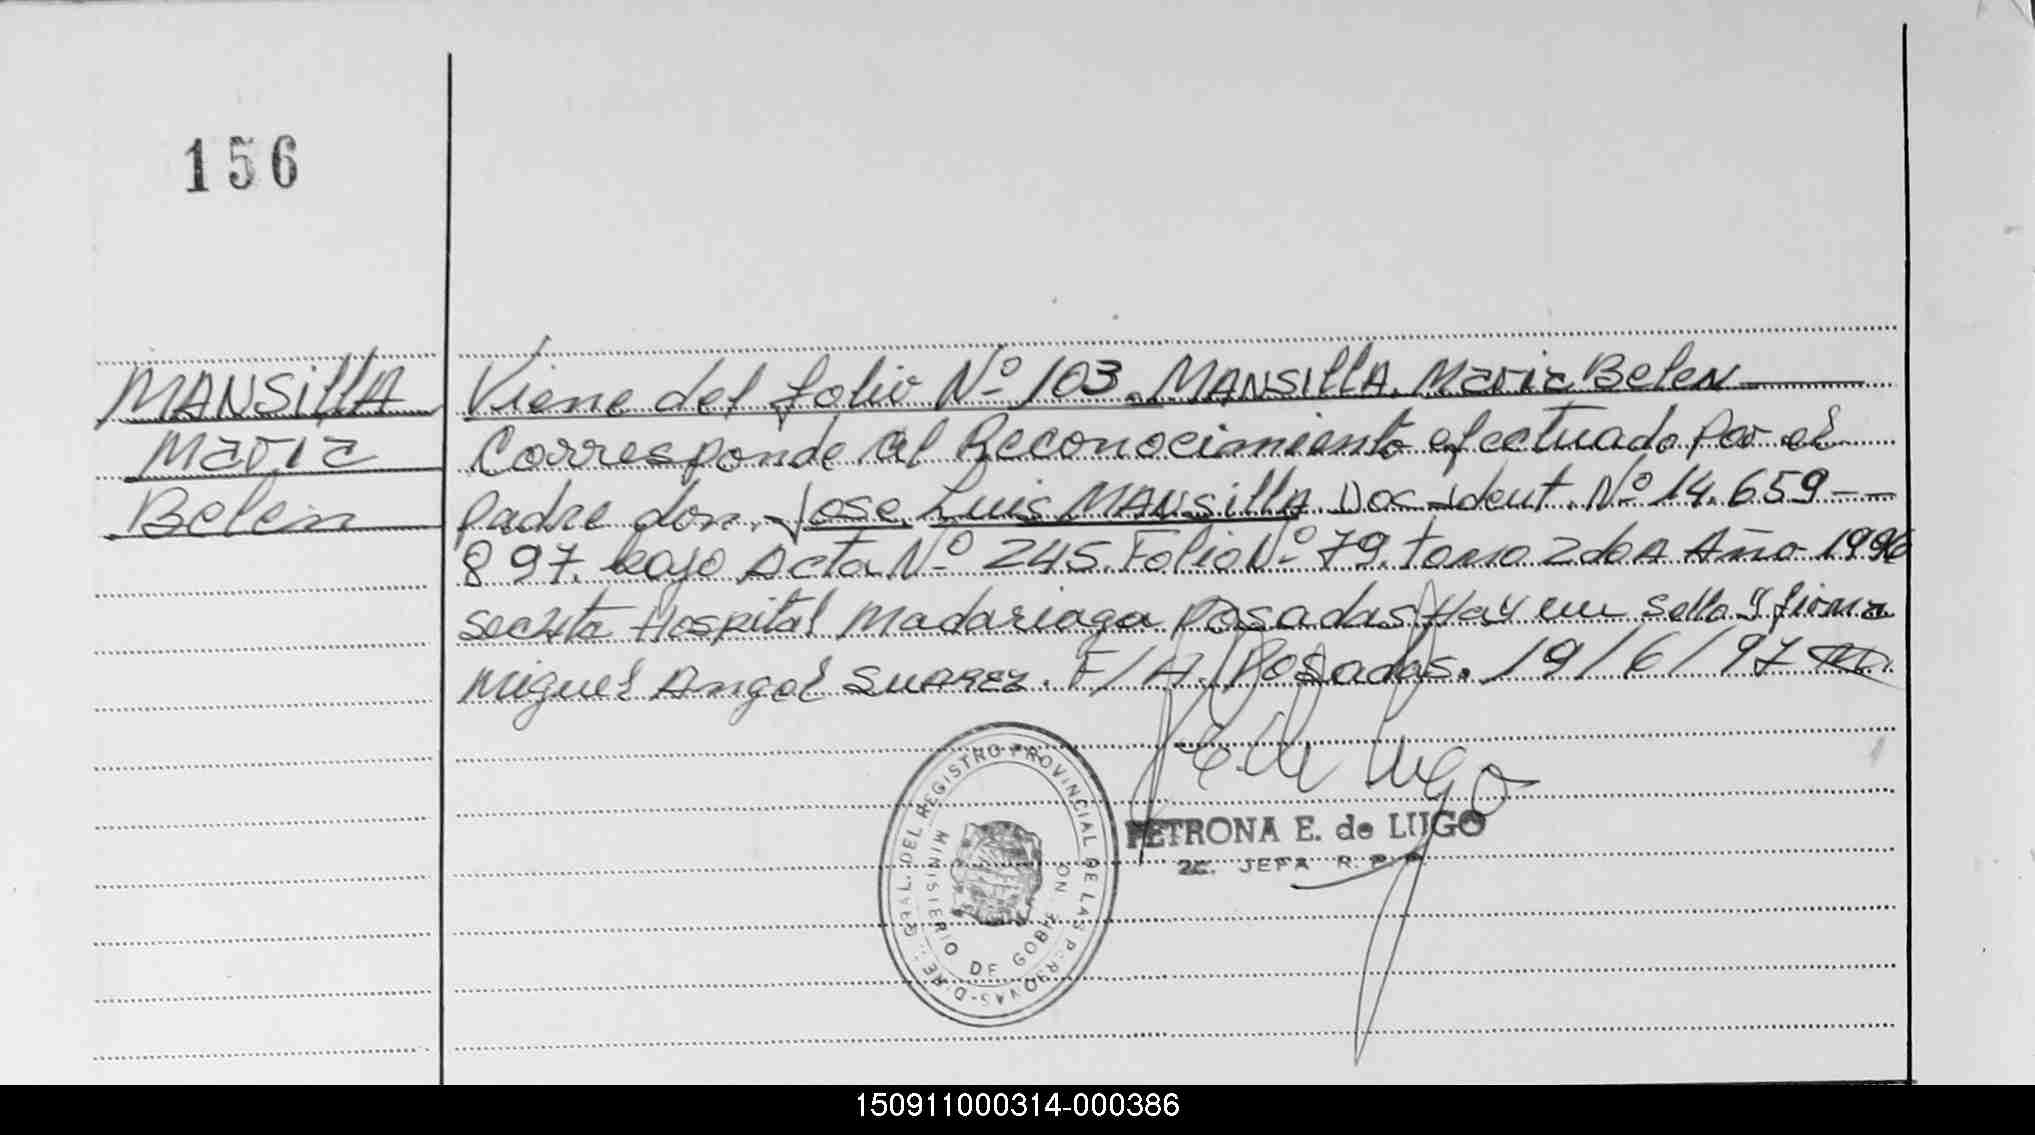 156
MANSillA
Maria
Belen
Viene del folio Nº 103. MANSIllA. Maria Belen
Corresponde al Reconocimiento efectuado por el
padre don. Jose Luis MANSillA Doc Ident. Nº 14.659
897. bajo Acta Nº 245. Folio Nº 79. tomo 2do A Año 1996
Hospital Madariaga Posadas Hay un sello y firma
Miguel Angel SUAREZ. F/A. Posadas. 19/6/97
REGISTRO PROVINCIAL DE LAS PERSONAS
MINISTERIO DE GOBIERNO
PETRONA E. de LUGO
2E. JEFA R. P. P.
150911000314-000386